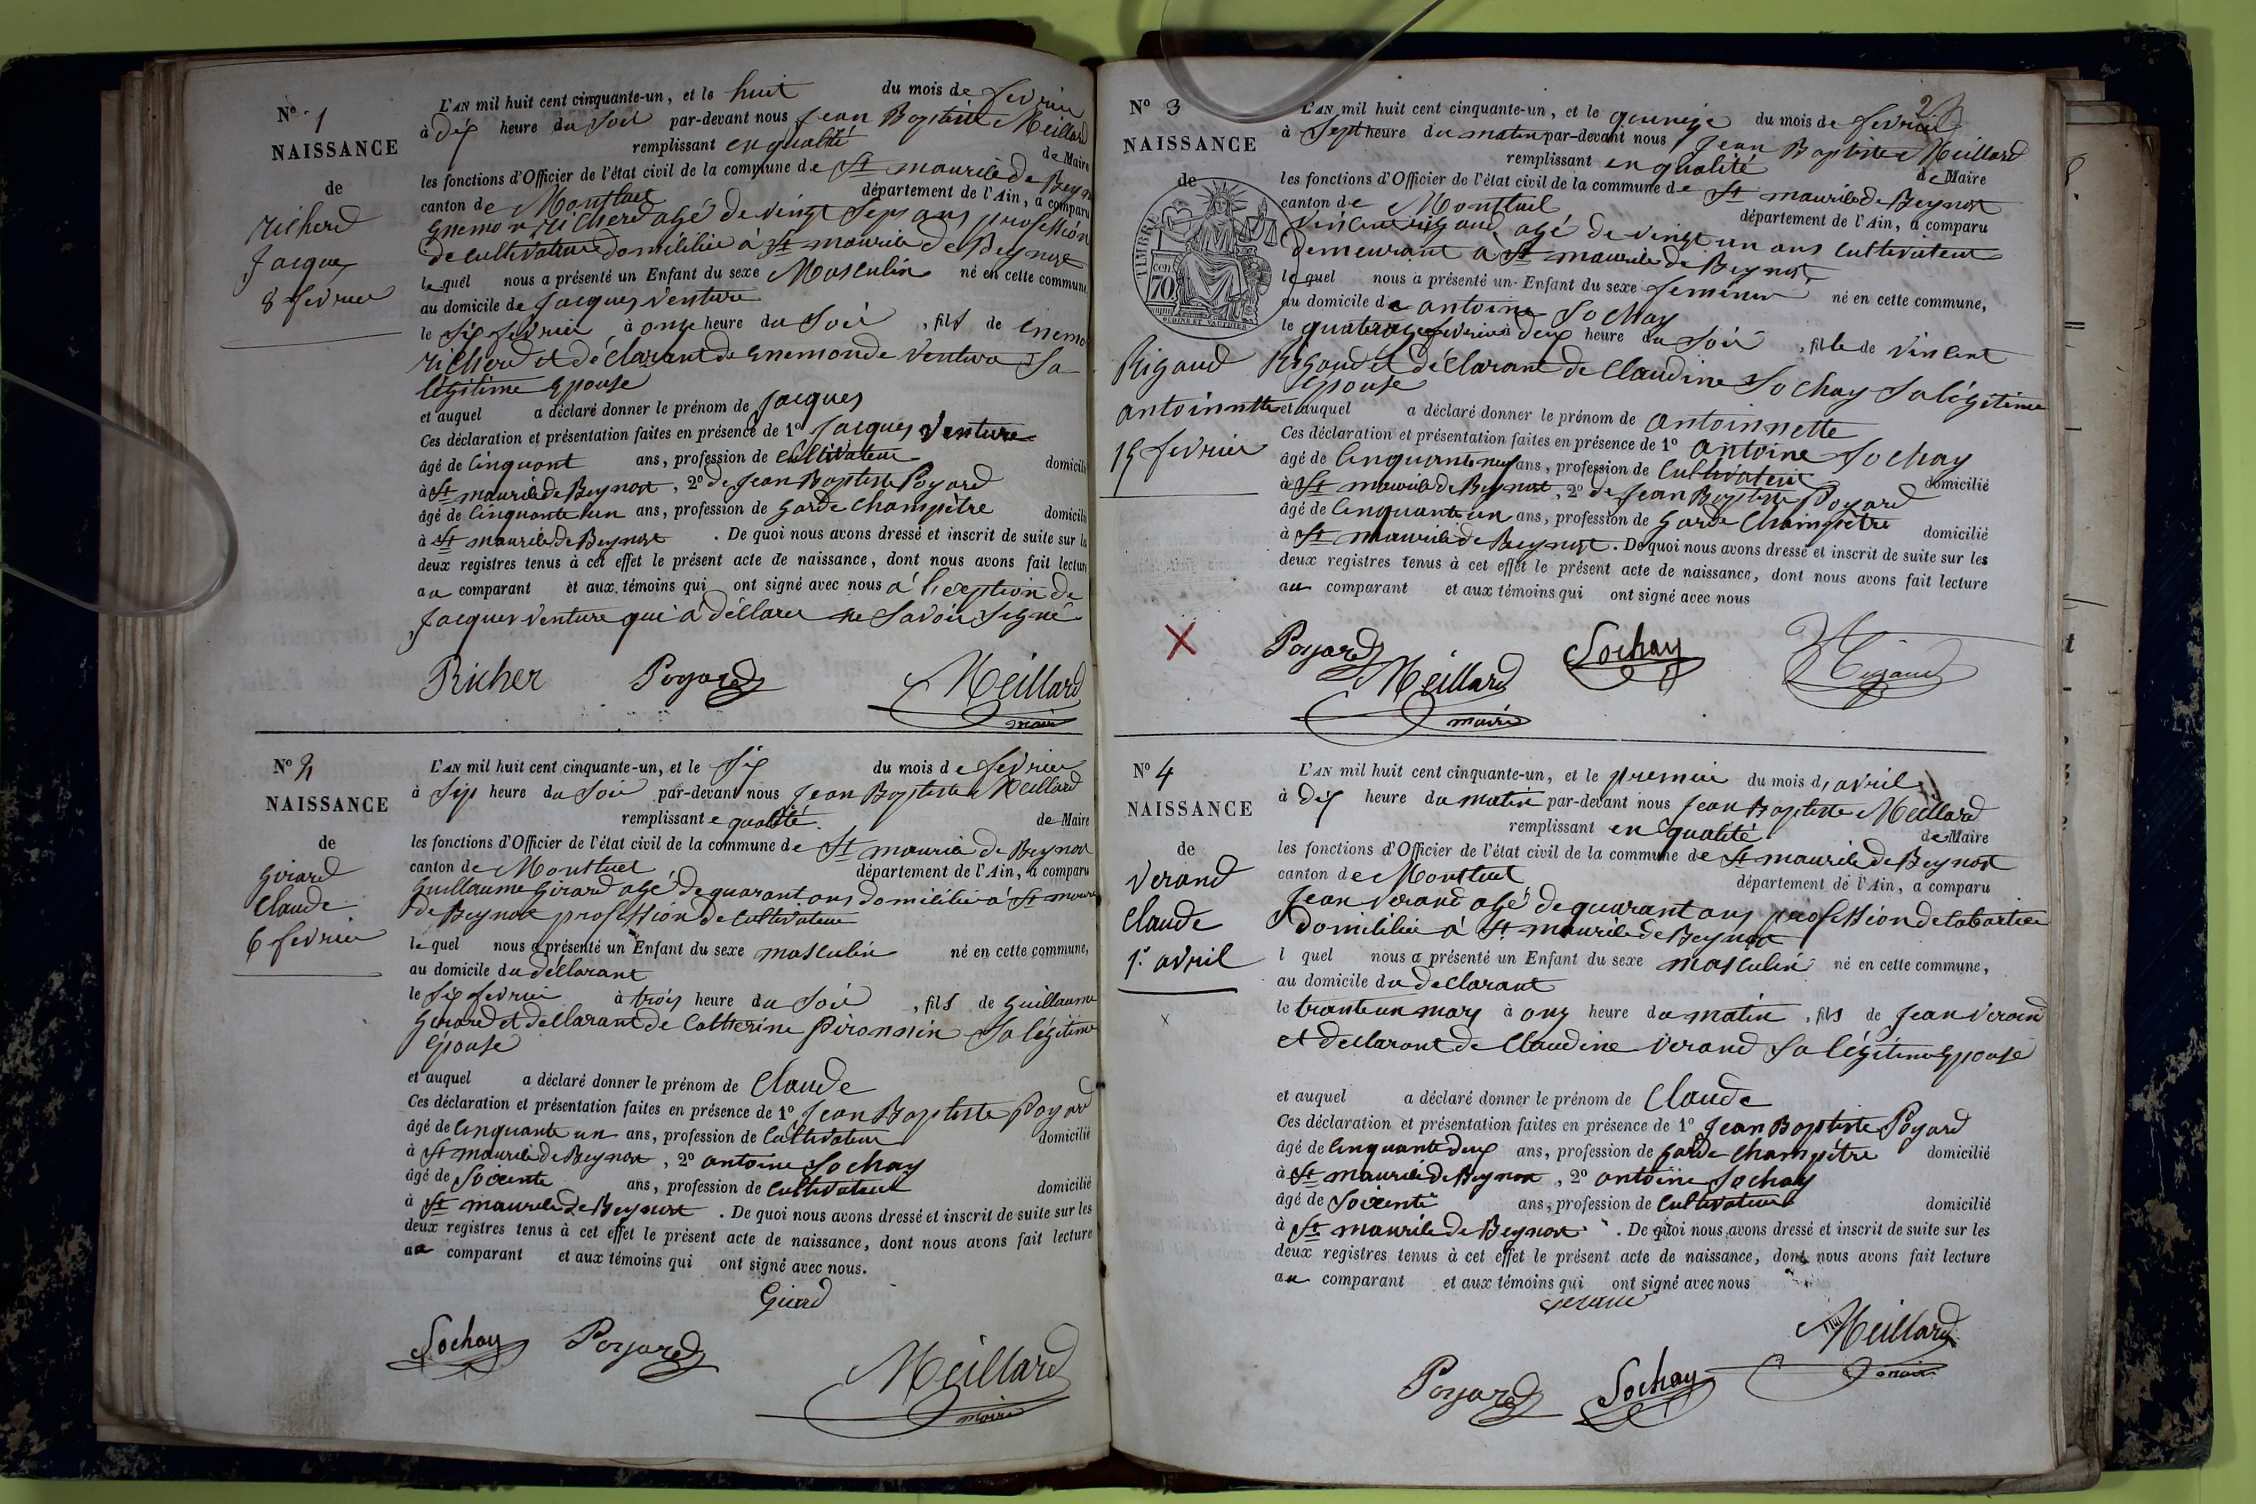 N° 1
NAISSANCE
de
richerd
Jacques
8 fevrier
L'AN mil huit cent cinquante-un, et le huit du mois de fevrier
à dix heure du soir par-devant nous Jean Baptiste Meillard
remplissant en qualité de Maire
les fonctions d'Officier de l'état civil de la commune de St maurice de Beyn
canton de Montluel département de l'Ain, a comparu
Enemon richerd agé de vingt sept ans profession
de cultivateur domicilié à St maurice de Beynost
lequel nous a présenté un Enfant du sexe Masculin né en cette commune,
au domicile de Jacques venture
le six fevrier à onze heure du soir, fils de Enemo
richerd et déclarant de Enemonde venture sa
légitime Epouse
et auquel a déclaré donner le prénom de Jacques
Ces déclaration et présentation faites en présence de 1° Jacques Venture
âgé de cinquant ans, profession de cultivateur domicilié
à St maurice de Beynost, 2° de Jean Baptiste Poyard
âgé de cinquante un ans, profession de garde champêtre domicilié
à St maurice de Beynost. De quoi nous avons dressé et inscrit de suite sur le
deux registres tenus à cet effet le présent acte de naissance, dont nous avons fait lecture
au comparant et aux témoins qui ont signé avec nous a l'éxeption de
Jacques venture qui a déllarer ne savoir signé
Richer Poyard Meillard
maire
N° 2
NAISSANCE
de
Girard
Claude
6 fevrier
L'AN mil huit cent cinquante-un, et le six du mois de fevrier
à six heure du soir par-devant nous Jean Baptiste Meillard
remplissant e qualité de Maire
les fonctions d'Officier de l'état civil de la commune de St mauric de Beynost
canton de Montluel département de l'Ain, a comparu
Guillaume Girard agé de quarant ans domicilié à St maur
de Beynost profession de cultivateur
lequel nous a présenté un Enfant du sexe masculin né en cette commune,
au domicile du déclarant
le six fevrier à trois heure du soir, fils de Guillaume
Girard et déclarant de Catherine Pironnin sa légitime
Epouse
et auquel a déclaré donner le prénom de Claude
Ces déclaration et présentation faites en présence de 1° Jean Baptiste Poyard
âgé de cinquante un ans, profession de cultivateur domicilié
à St maurice de Beynost, 2° antoine Sochay
âgé de Soixente ans, profession de cultivateur domicilié
à St maurice de Beynost. De quoi nous avons dressé et inscrit de suite sur les
deux registres tenus à cet effet le présent acte de naissance, dont nous avons fait lecture
au comparant et aux témoins qui ont signé avec nous.
Girard
Sochay Poyard Meillard
maire
2
N° 3
NAISSANCE
de
TIMBRE
70
Rigaud
antoinette
15 fevrier
L'AN mil huit cent cinquante-un, et le quinze du mois de fevrier
à Sept heure du matin par-devant nous Jean Baptiste Meillard
remplissant en qualité de Maire
les fonctions d'Officier de l'état civil de la commune de St maurice de Beynost
canton de Montluel département de l'Ain, a comparu
Vincent rigaud agé de vingt un ans cultivateur
demeurant a St maurice de Beynost
lequel nous a présenté un Enfant du sexe feminin né en cette commune,
au domicile de antoine Sochay
le quatorze fevrier à deux heure du soir, fille de vincent
Rigaud et déclarant de Claudine Sochay sa légitime
Epouse
et auquel a déclaré donner le prénom de antoinnette
Ces déclaration et présentation faites en présence de 1° antoine Sochay
âgé de cinquante neuf ans, profession de cultivateur domicilié
à St maurice de Beynost, 2° de Jean Baptiste Poyard
âgé de cinquante un ans, profession de garde champêtre domicilié
à St maurice de Beynost. De quoi nous avons dressé et inscrit de suite sur les
deux registres tenus à cet effet le présent acte de naissance, dont nous avons fait lecture
au comparant et aux témoins qui ont signé avec nous
Poyard Sochay Rigaud
Meillard
maire
N° 4
NAISSANCE
de
Verand
Claude
1r avril
L'AN mil huit cent cinquante-un, et le premier du mois d'avril
à dix heure du matin par-devant nous Jean Baptiste Meillard
remplissant en qualité de Maire
les fonctions d'Officier de l'état civil de la commune de St maurice de Beynost
canton de Montluel département de l'Ain, a comparu
Jean verand agé de quarant ans profession de cabartier
domicilié à St maurice de Beynost
l quel nous a présenté un Enfant du sexe masculin né en cette commune,
au domicile du declarant
le trante un mars à onz heure du matin, fils de Jean Verand
et declarant de Claudine Verand sa légitime Epouse
et auquel a déclaré donner le prénom de Claude
Ces déclaration et présentation faites en présence de 1° Jean Baptiste Poyard
âgé de cinquante deux ans, profession de garde champétre domicilié
à St maurice de Beynost, 2° antoine Sochay
âgé de Soixente ans, profession de cultivateur domicilié
à St maurice de Beynost. De quoi nous avons dressé et inscrit de suite sur les
deux registres tenus à cet effet le présent acte de naissance, dont nous avons fait lecture
au comparant et aux témoins qui ont signé avec nous
Meillard
maire
Poyard Sochay